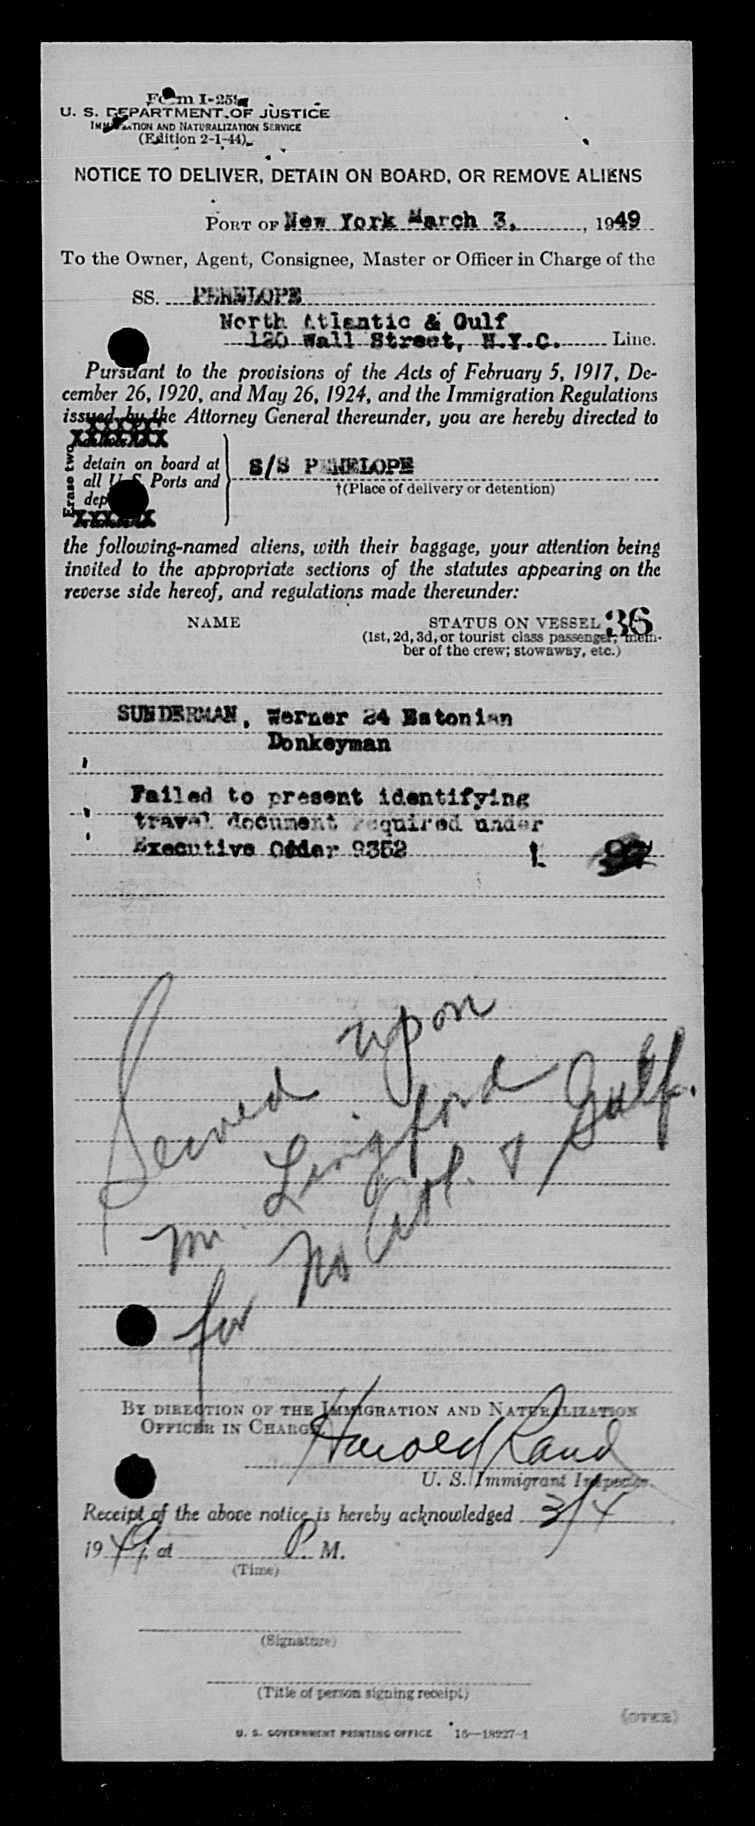 Form I-259
U. S. DEPARTMENT OF JUSTICE
IMMIGRATION AND NATURALIZATION SERVICE
(Edition 2-1-44)
NOTICE TO DELIVER, DETAIN ON BOARD, OR REMOVE ALIENS
PORT OF New York March 3, 1949
To the Owner, Agent, Consignee, Master or Officer in Charge of the
SS. PENELOPE
North Atlantic & Gulf
120 Wall Street, N.Y.C. Line.
Pursuant to the provisions of the Acts of February 5, 1917, De-
cember 26, 1920, and May 26, 1924, and the Immigration Regulations
issued by the Attorney General thereunder, you are hereby directed to
Erase two
detain on board at
all U. S. Ports and S/S PENELOPE
†(Place of delivery or detention)
the following-named aliens, with their baggage, your attention being
invited to the appropriate sections of the statutes appearing on the
reverse side hereof, and regulations made thereunder:
NAME STATUS ON VESSEL 36
(1st, 2d, 3d, or tourist class passenger; mem-
ber of the crew; stowaway, etc.)
SUNDERMAN, Werner 24 Estonian
Donkeyman
Failed to present identifying
travel document required under
Executive Order 9352
Served upon
Mr. Lingford
for No Atl. & Gulf.
BY DIRECTION OF THE IMMIGRATION AND NATURALIZATION
OFFICER IN CHARGE
Harold Rand
U. S. Immigrant Inspector.
Receipt of the above notice is hereby acknowledged 3/4
1949, at P. M.
(Time)
(Signature)
(Title of person signing receipt)
(OVER)
U. S. GOVERNMENT PRINTING OFFICE 16—18227-1